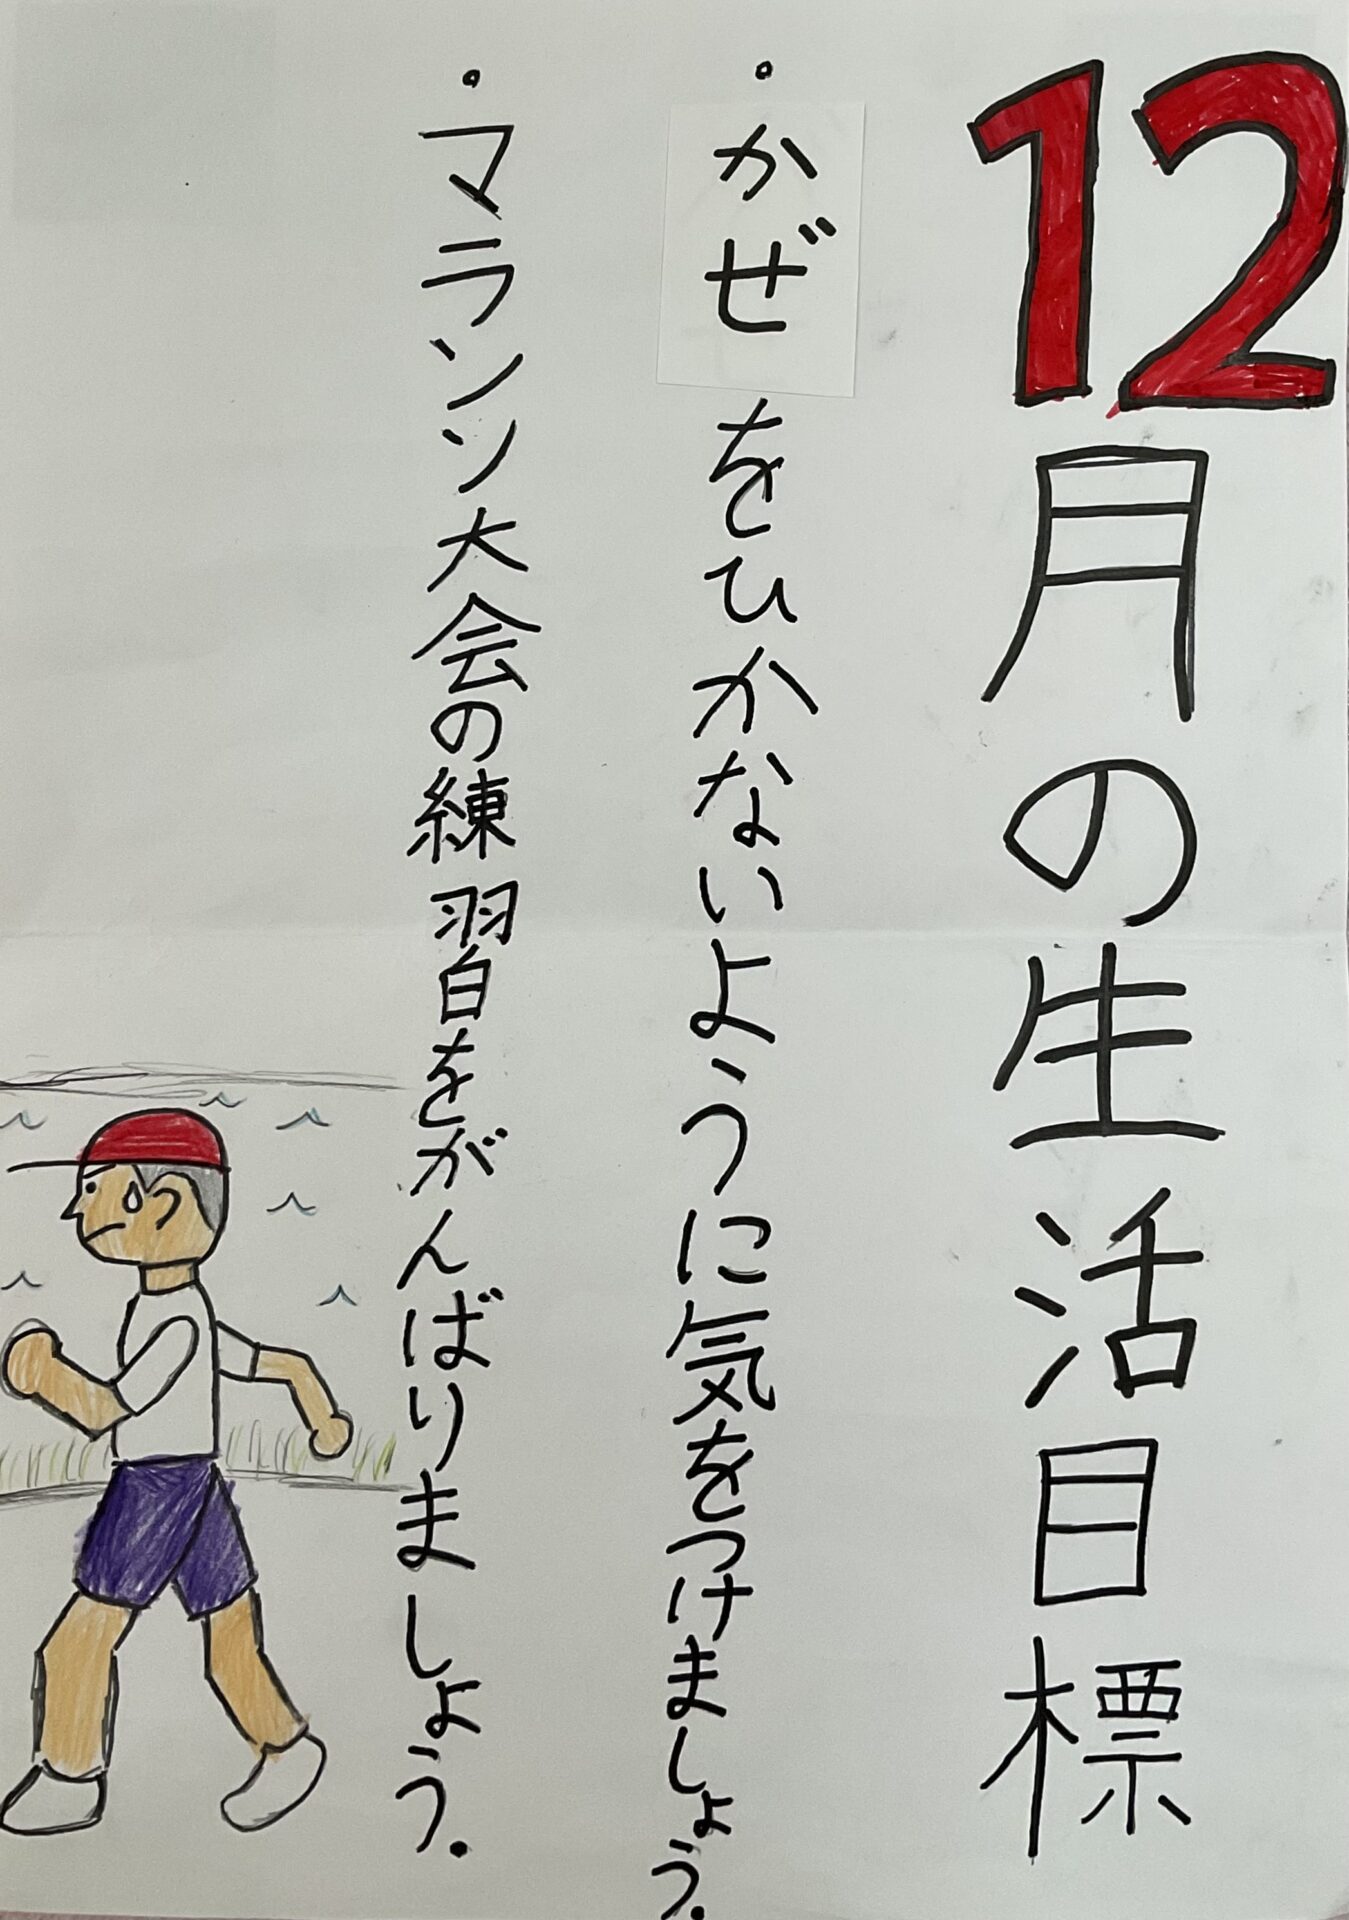 12月の生活目標
・かぜをひかないように気をつけましょう.
・マランソ大会の練習をがんばりましょう.